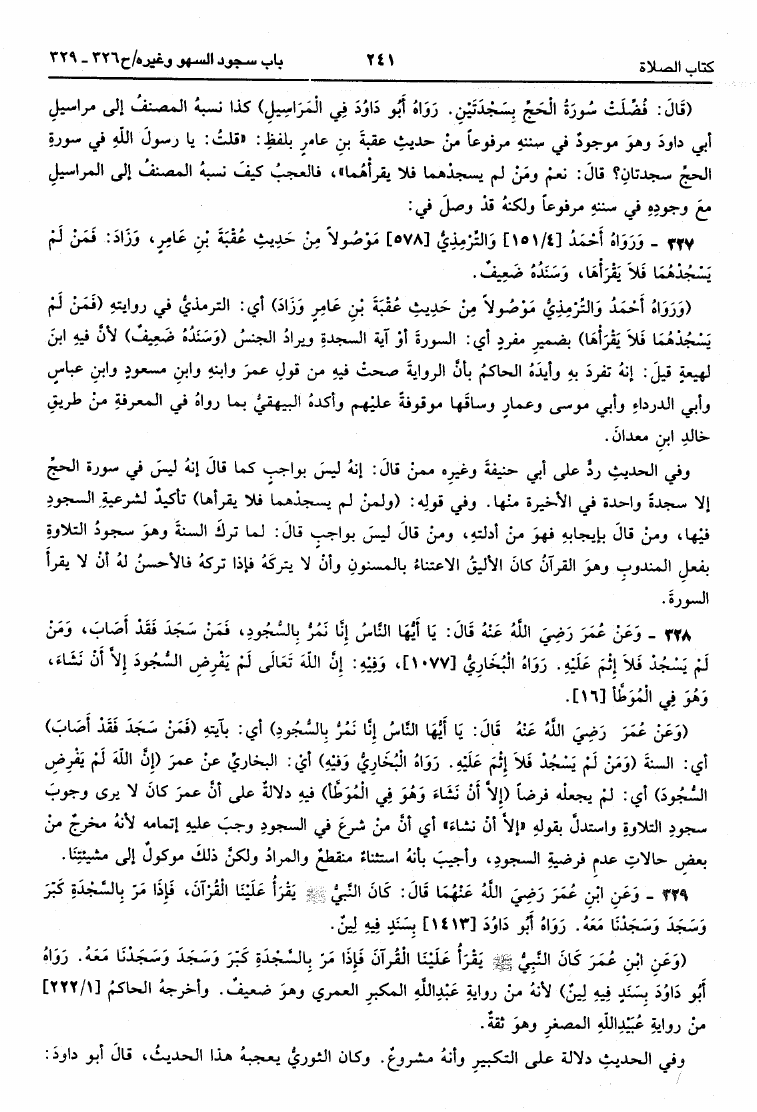 كتاب الصلاة ٢٤١ باب سجود السهو وغيره/ح٣٢٦ - ٣٢٩
(قَالَ: فُضِّلَتْ سُورَةُ الْحَجِّ بِسَجْدَتَيْنِ. رَوَاهُ أَبُو دَاوُدَ فِي الْمَرَاسِيلِ) كذا نسبهُ المصنفُ إلى مراسيلِ
أبي داودَ وهوَ موجودٌ في سننهِ مرفوعاً منْ حديثِ عقبةَ بنِ عامرٍ بلفظِ: «قلتُ: يا رسولَ اللَّهِ في سورةِ
الحجِّ سجدتانِ؟ قالَ: نعمْ ومَنْ لم يسجدْهما فلا يقرأْهُما»، فالعجبُ كيفَ نسبهُ المصنفُ إلى المراسيلِ
معَ وجودِهِ في سننهِ مرفوعاً ولكنهُ قدْ وصلَ في:
٣٢٧ - وَرَوَاهُ أَحْمَدُ [١٥١/٤] وَالتِّرْمِذِيُّ [٥٧٨] مَوْصُولاً مِنْ حَدِيثِ عُقْبَةَ بْنِ عَامِرٍ، وَزَادَ: فَمَنْ لَمْ
يَسْجُدْهُمَا فَلاَ يَقْرَأْهَا، وَسَنَدُهُ ضَعِيفٌ.
(وَرَوَاهُ أَحْمَدُ وَالتِّرْمِذِيُّ مَوْصُولاً مِنْ حَدِيثِ عُقْبَةَ بْنِ عَامِرٍ وَزَادَ) أي: الترمذيُّ في روايتهِ (فَمَنْ لَمْ
يَسْجُدْهُمَا فَلاَ يَقْرَأْهَا) بضميرٍ مفردٍ أي: السورةَ أوْ آيةَ السجدةِ ويرادُ الجنسُ (وَسَنَدُهُ ضَعِيفٌ) لأنَّ فيهِ ابنَ
لهيعةٍ قيلَ: إنهُ تفردَ بهِ وأيدَهُ الحاكمُ بأنَّ الروايةَ صحتْ فيهِ من قولِ عمرَ وابنهِ وابنِ مسعودٍ وابنِ عباسٍ
وأبي الدرداءِ وأبي موسى وعمارٍ وساقَها موقوفةً عليْهم وأكدهُ البيهقيُّ بما رواهُ في المعرفةِ منْ طريقِ
خالدِ ابنِ معدانَ.
وفي الحديثِ ردٌّ على أبي حنيفةَ وغيرِه ممنْ قالَ: إنهُ ليسَ بواجبٍ كما قالَ إنهُ ليسَ في سورةِ الحجِّ
إلا سجدةً واحدة في الأخيرةِ منْها. وفي قولِه: (ولمنْ لم يسجدْهما فلا يقرأها) تأكيدٌ لشرعيةِ السجودِ
فيْها، ومنْ قالَ بإيجابهِ فهوَ منْ أدلتهِ، ومنْ قالَ ليسَ بواجبٍ قالَ: لما تركَ السنةَ وهوَ سجودُ التلاوةِ
بفعلِ المندوبِ وهوَ القرآنُ كانَ الأليقُ الاعتناءُ بالمسنونِ وأنْ لا يتركَهُ فإذا تركهُ فالأحسنُ لهُ أنْ لا يقرأَ
السورةَ.
٣٢٨ - وَعَنْ عُمَرَ رَضِيَ اللَّهُ عَنْهُ قَالَ: يَا أَيُّهَا النَّاسُ إِنَّا نَمُرُّ بِالسُّجُودِ، فَمَنْ سَجَدَ فَقَدْ أَصَابَ، وَمَنْ
لَمْ يَسْجُدْ فَلاَ إِثْمَ عَلَيْهِ. رَوَاهُ الْبُخَارِيُّ [١٠٧٧]، وَفِيْهِ: إِنَّ اللَّهَ تَعَالَى لَمْ يَفْرِضِ السُّجُودَ إِلاَّ أَنْ نَشَاءَ،
وَهُوَ فِي الْمُوَطَّأِ [١٦].
(وَعَنْ عُمَرَ رَضِيَ اللَّهُ عَنْهُ قَالَ: يَا أَيُّهَا النَّاسُ إِنَّا نَمُرُّ بِالسُّجُودِ) أي: بآيتهِ (فَمَنْ سَجَدَ فَقَدْ أَصَابَ)
أي: السنةَ (وَمَنْ لَمْ يَسْجُدْ فَلاَ إِثْمَ عَلَيْهِ. رَوَاهُ الْبُخَارِيُّ وَفِيْهِ) أيْ: البخاريِّ عنْ عمرَ (إِنَّ اللَّهَ لَمْ يَفْرِضِ
السُّجُودَ) أي: لمْ يجعلْه فرضاً (إِلاَّ أَنْ نَشَاءَ وَهُوَ فِي الْمُوَطَّأِ) فيهِ دلالةٌ على أنَّ عمرَ كانَ لا يرى وجوبَ
سجودِ التلاوةِ واستدلَّ بقولِهِ «إلاَّ أنْ نشاءَ» أي أنَّ منْ شرعَ في السجودِ وجبَ عليهِ إتمامه لأنهُ مخرجٌ منْ
بعضِ حالاتِ عدمِ فرضيةِ السجودِ، وأجيبَ بأنهُ استثناءٌ منقطعٌ والمرادُ ولكنَّ ذلكَ موكولٌ إلى مشيئتِنَا.
٣٢٩ - وَعَنِ ابْنِ عُمَرَ رَضِيَ اللَّهُ عَنْهُمَا قَالَ: كَانَ النَّبِيُّ ﷺ يَقْرَأُ عَلَيْنَا الْقُرْآنَ، فَإِذَا مَرّ بِالسَّجْدَةِ كَبّرَ
وَسَجَدَ وَسَجَدْنَا مَعَهُ. رَوَاهُ أَبُو دَاوُدَ [١٤١٣] بِسَنَدٍ فِيهِ لِينٌ.
(وَعَنِ ابْنِ عُمَرَ كَانَ النَّبِيُّ ﷺ يَقْرَأُ عَلَيْنَا الْقُرْآنَ فَإِذَا مَرّ بِالسَّجْدَةِ كَبّرَ وَسَجَدَ وَسَجَدْنَا مَعَهُ. رَوَاهُ
أَبُو دَاوُدَ بِسَنَدٍ فِيهِ لِينٌ) لأنهُ منْ روايةِ عَبْدِاللَّهِ المكبرِ العمري وهوَ ضعيفٌ. وأخرجهُ الحاكمُ [٢٢٢/١]
منْ روايةِ عُبَيْدِاللَّهِ المصغرِ وهوَ ثقةٌ.
وفي الحديثِ دلالة على التكبيرِ وأنهُ مشروعٌ. وكان الثوريُّ يعجبهُ هذا الحديثُ، قالَ أبو داودَ: